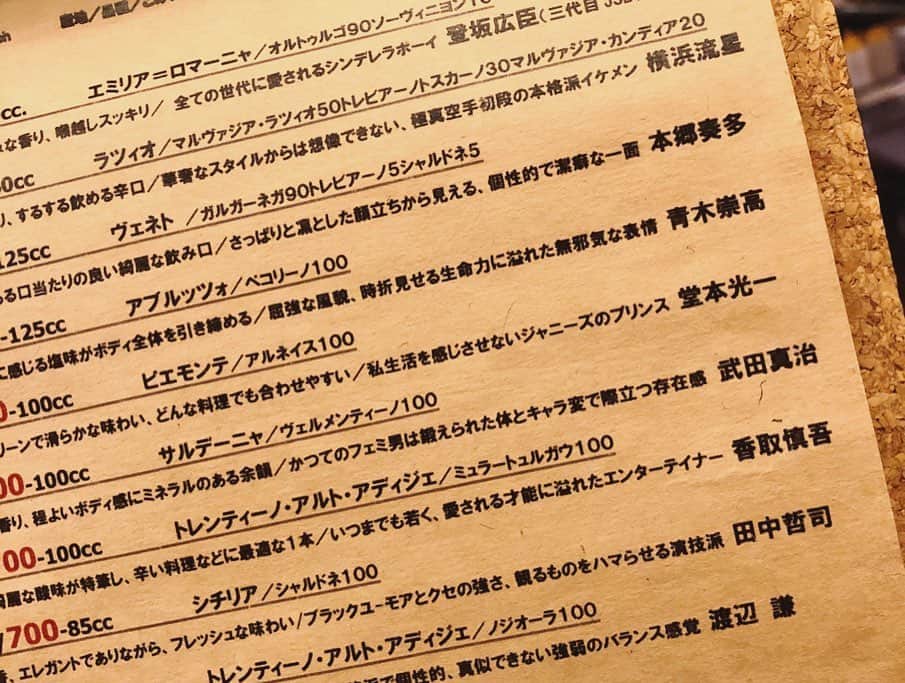 産地／品種／
cc. エミリア＝ロマーニャ／オルトゥルゴ90ソーヴィニヨン10
な香り、喉越しスッキリ／ 全ての世代に愛されるシンデレラボーイ 登坂広臣(三代目 JSB
0cc ラツィオ／マルヴァジア・ラツィオ50トレビアーノトスカーノ30マルヴァジア・カンディア20
り、するする飲める辛口／華奢なスタイルからは想像できない、極真空手初段の本格派イケメン 横浜流星
125cc ヴェネト ／ガルガーネガ90トレビアーノ5シャルドネ5
ある口当たりの良い綺麗な飲み口／さっぱりと凛とした顔立ちから見える、個性的で潔癖な一面 本郷奏多
-125cc アブルッツォ／ペコリーノ100
に感じる塩味がボディ全体を引き締める／屈強な風貌、時折見せる生命力に溢れた無邪気な表情 青木崇高
0-100cc ピエモンテ／アルネイス100
リーンで滑らかな味わい、どんな料理でも合わせやすい／私生活を感じさせないジャニーズのプリンス 堂本光一
00-100cc サルデーニャ／ヴェルメンティーノ100
香り、程よいボディ感にミネラルのある余韻／かつてのフェミ男は鍛えられた体とキャラ変で際立つ存在感 武田真治
700-100cc トレンティーノ・アルト・アディジェ／ミュラートュルガウ100
綺麗な酸味が特筆し、辛い料理などに最適な1本／いつまでも若く、愛される才能に溢れたエンターテイナー 香取慎吾
/700-85cc シチリア／シャルドネ100
香、エレガントでありながら、フレッシュな味わい/ブラックユーモアとクセの強さ、観るものをハマらせる演技派 田中哲司
トレンティーノ・アルト・アディジェ／ノジオーラ100
で個性的、真似できない強弱のバランス感覚 渡辺 謙